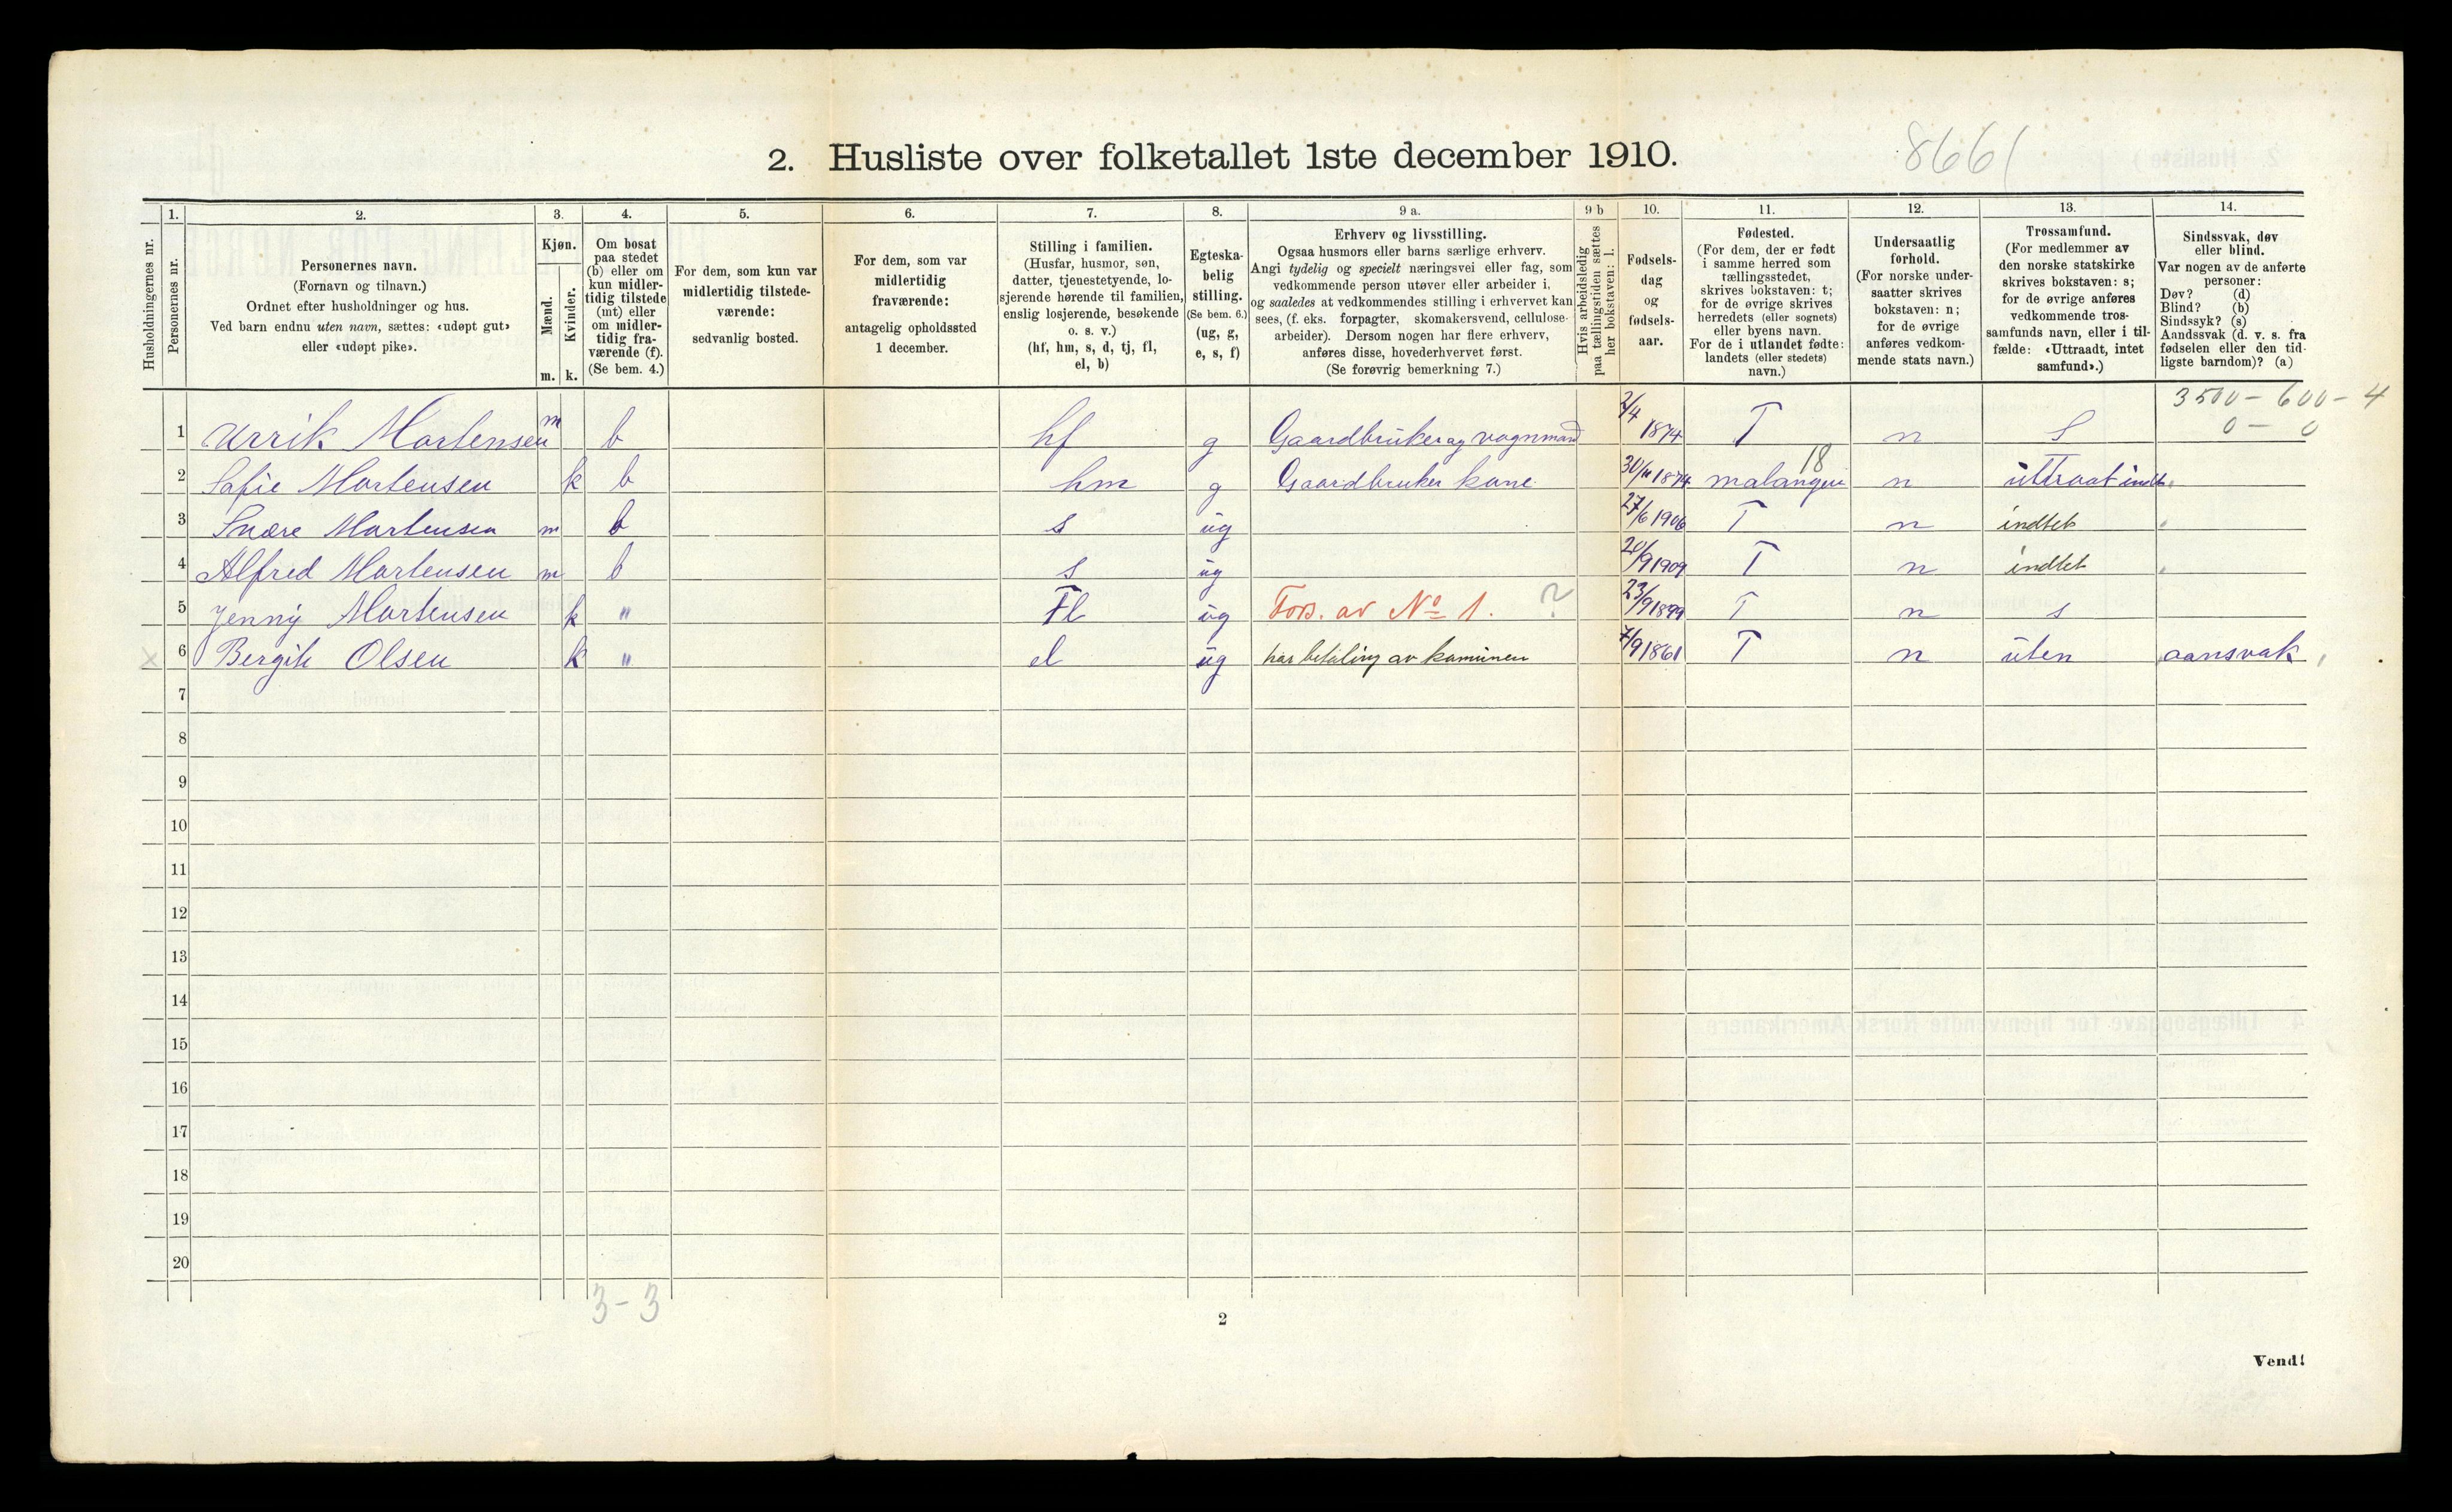 2. Husliste over folketallet 1ste december 1910.
8661
Husholdningernes nr.
1.
Personernes nr.
2.
Personernes navn.
(Fornavn og tilnavn.)
Ordnet efter husholdninger og hus.
Ved barn endnu uten navn, sættes: «udøpt gut»
eller «udøpt pike».
3.
Kjøn.
Mænd.
Kvinder.
m. k.
4.
Om bosat
paa stedet
(b) eller om
kun midler-
tidig tilstede
(mt) eller
om midler-
tidig fra-
værende (f).
(Se bem. 4.)
5.
For dem, som kun var
midlertidig tilstede-
værende:
sedvanlig bosted.
6.
For dem, som var
midlertidig
fraværende:
antagelig opholdssted
1 december.
7.
Stilling i familien.
(Husfar, husmor, søn,
datter, tjenestetyende, lo-
sjerende hørende til familien,
enslig losjerende, besøkende
o. s. v.)
(hf, hm, s, d, tj, fl,
el, b)
8.
Egteska-
belig
stilling.
(Se bem. 6.)
(ug, g,
e, s, f)
9 a.
Erhverv og livsstilling.
Ogsaa husmors eller barns særlige erhverv.
Angi tydelig og specielt næringsvei eller fag, som
vedkommende person utøver eller arbeider i,
og saaledes at vedkommendes stilling i erhvervet kan
sees, (f. eks. forpagter, skomakersvend, cellulose-
arbeider). Dersom nogen har flere erhverv,
anføres disse, hovederhvervet først.
(Se forøvrig bemerkning 7.)
9 b
Hvis arbeidsledig
paa tællingstiden sættes
her bokstaven: l.
10.
Fødsels-
dag
og
fødsels-
aar.
11.
Fødested.
(For dem, der er født
i samme herred som
tællingsstedet,
skrives bokstaven: t;
for de øvrige skrives
herredets (eller sognets)
eller byens navn.
For de i utlandet fødte:
landets (eller stedets)
navn.)
12.
Undersaatlig
forhold.
(For norske under-
saatter skrives
bokstaven: n;
for de øvrige
anføres vedkom-
mende stats navn.)
13.
Trossamfund.
(For medlemmer av
den norske statskirke
skrives bokstaven: s;
for de øvrige anføres
vedkommende tros-
samfunds navn, eller i til-
fælde: «Uttraadt, intet
samfund».)
14.
Sindssvak, døv
eller blind.
Var nogen av de anførte
personer:
Døv? (d)
Blind? (b)
Sindssyk? (s)
Aandssvak (d. v. s. fra
fødselen eller den tid-
ligste barndom)? (a)
3500 - 600 - 4
0 - 0
1 Urrik Mortensen m b hf g Gaardbruker ag vognmand 2/4 1874 T n S
18
2 Sofie Mortensen k b hm g Gaardbruker kone 1874 malangen n uttraat indt.
3 Snære Mortensen m b s ug 27/6 1906 T n indtet
4 Alfred Mortensen m b s ug 20/9 1909 T n indtet
5 Jenny Mortensen k " Fl ug Fors. av No 1. ? 23/9 1899 T n s
x 6 Bergit Olsen k " el ug har betaling av kamunen 7/9 1861 T n uten aansvak
7
8
9
10
11
12
13
14
15
16
17
18
19
20
3 - 3
2
Vend!